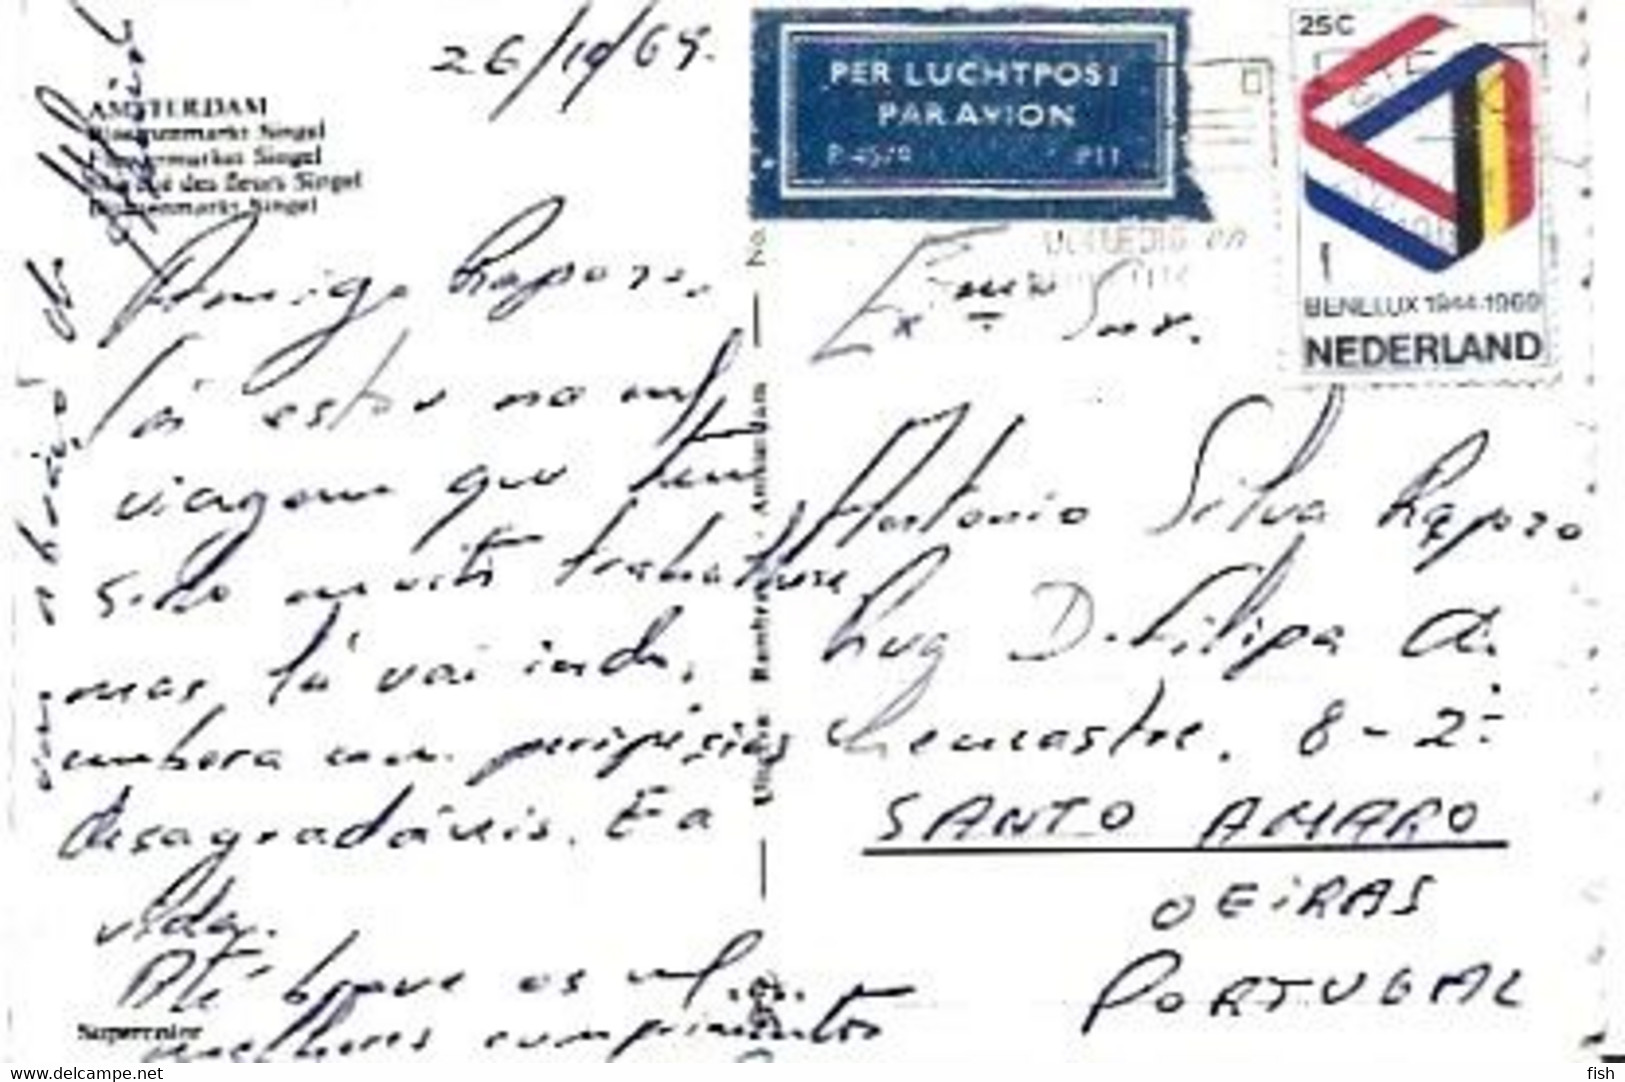 26/10/69.
AMSTERDAM
Bloemenmarkt Singel
Flowermarket Singel
Marché des fleurs Singel
Blumenmarkt Singel
Amigo Raposo,
Cá estou na
viagem que tem
sido muito trabalhosa,
mas lá vai indo,
embora com peripésias
desagradáveis. É a
vida.
Até breve os
melhores cumprimentos
um abraço do
Supercolor
PER LUCHTPOST
PAR AVION
P 4579 PTT
25C
BENELUX 1944-1969
NEDERLAND
Exmo Snr.
Antonio Silva Raposo
Rua D. Filipa de
Lencastre. 8-2º
SANTO AMARO
OEIRAS
PORTUGAL
www.delcampe.net
fish